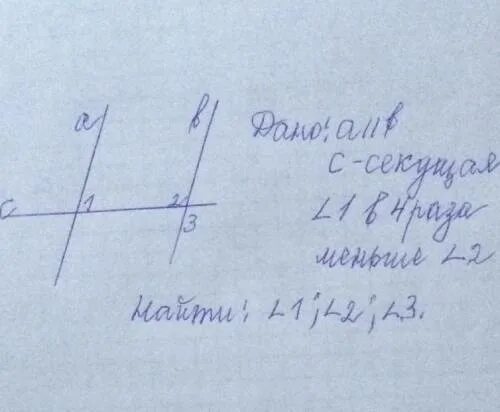 a
в
Дано: a || в
c
1
2
3
c - секущая
∠1 в 4 раза
меньше ∠2
Найти: ∠1; ∠2; ∠3.